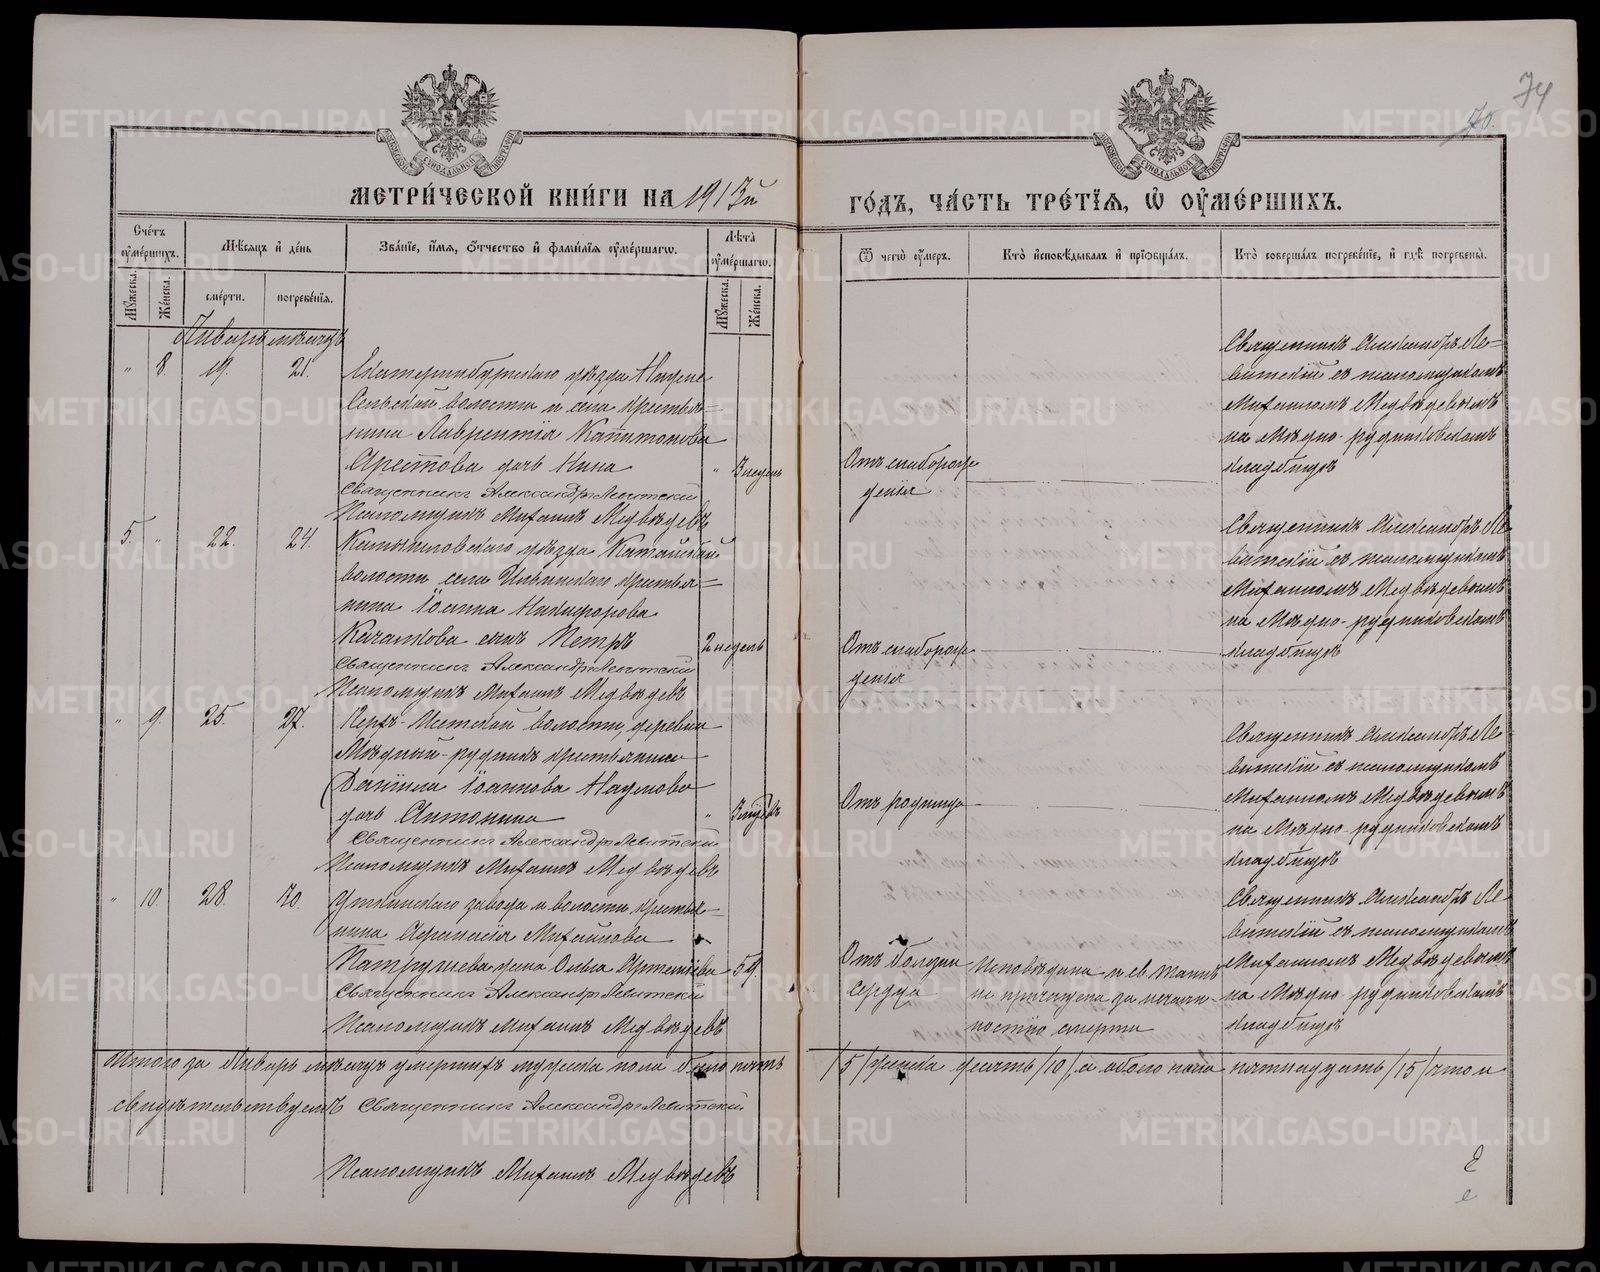 74
70.
МЕТРИ́ЧЕСКОЙ КНИ́ГИ НА 1913й ГО́ДЪ, ЧА́СТЬ ТРЕ́ТІѦ, Ѽ ОУМЕ́РШИХЪ.
Сче́тъ оуме́ршихъ.
Мѣ́сѧцъ и де́нь
Зва́нїе, и́мѧ, ѻ́тчество и фами́лїѧ оуме́ршагѡ.
Лѣта̀ оуме́ршагѡ.
Ѿ чегѡ̀ оу́меръ.
Кто̀ исповѣ́дывалъ и прїѡбща́лъ.
Кто̀ соверша́лъ погребе́нїе, и гдѣ̀ погребены̀.
Мꙋ́жеска.
Же́нска.
сме́рти.
погребе́нїѧ.
Мꙋ́жеска.
Же́нска.
Январь мѣсяцъ
" 8. 19. 21. Екатеринбургскаго уѣзда
Сельской волости и села крестья=
нина Лаврентія Капитонова
Арестова дочь Нина " 3 недель
Священникъ Александръ Левитскій
Псаломщикъ Михаилъ Медвѣдевъ
Отъ слаборож
денія
Священникъ Александръ Ле=
витскій съ псаломщикомъ
Михаиломъ Медвѣдевымъ
на Мѣдно-рудниковскомъ
кладбищѣ
5. " 22. 24. Камышловскаго уѣзда Катайской
волости села Ильинскаго крестья=
нина Іоанна Никифорова
Качалкова сынъ Петръ 2 недель
Священникъ Александръ Левитскій
Псаломщикъ Михаилъ Медвѣдевъ
Отъ слаборож
денія
Священникъ Александръ Ле
витскій съ псаломщикомъ
Михаиломъ Медвѣдевымъ
на Мѣдно-рудниковскомъ
кладбищѣ
" 9. 25. 27. Верхъ-Исетской волости, деревни
Мѣдный-рудникъ крестьянина
Даніила Іоаннова Наумова
дочь Антонина "
Священникъ Александръ Левитскій
Псаломщикъ Михаилъ Медвѣдевъ
Отъ родимца
Священникъ Александръ Ле
витскій съ псаломщикомъ
Михаиломъ Медвѣдевымъ
на Мѣдно-рудниковскомъ
кладбищѣ
" 10. 28. 30. Уткинскаго завода и волости крестья=
нина Афанасія Михайлова
Патрушева жена Ольга Артемьева 59.
Священникъ Александръ Левитскій
Псаломщикъ Михаилъ Медвѣдевъ
Отъ болѣзни
сердца
Исповѣдана и св. таинъ
не причащена за нечаян-
ностію смерти
Священникъ Александръ Ле
витскій съ псаломщикомъ
Михаиломъ Медвѣдевымъ
на Мѣдно-рудниковскомъ
кладбищѣ
Итого за Январь мѣсяцъ умершихъ мужеска пола было пять /5/ женска десять /10/, а обоего пола пятнадцать /15/ что и
свидѣтельствуемъ Священникъ Александръ Левитскій
Псаломщикъ Михаилъ Медвѣдевъ
METRIKI.GASO-URAL.RU